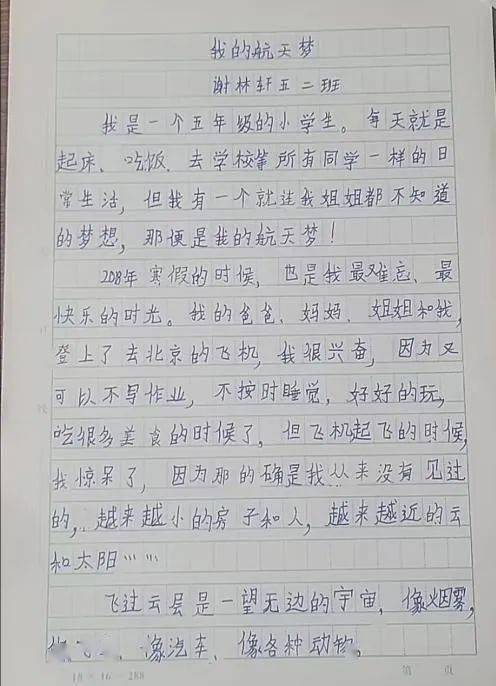 我的航天梦
谢林轩五二班
我是一个五年级的小学生。每天就是
起床、吃饭、去学校等所有同学一样的日
常生活，但我有一个就连我姐姐都不知道
的梦想，那便是我的航天梦！
2018年寒假的时候，也是我最难忘、最
快乐的时光。我的爸爸、妈妈、姐姐和我，
登上了去北京的飞机，我很兴奋，因为又
可以不写作业，不按时睡觉，好好的玩，
吃很多美食的时候了，但飞机起飞的时候，
我惊呆了，因为那的确是我从来没有见过
的，越来越小的房子和人，越来越近的云
和太阳……
飞过云层是一望无边的宇宙，像烟雾，
、像汽车、像各种动物，
18×16=288
第 页